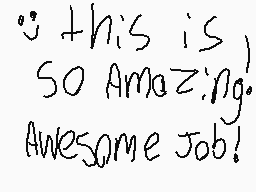 this is
so Amazing!
Awesome Job!